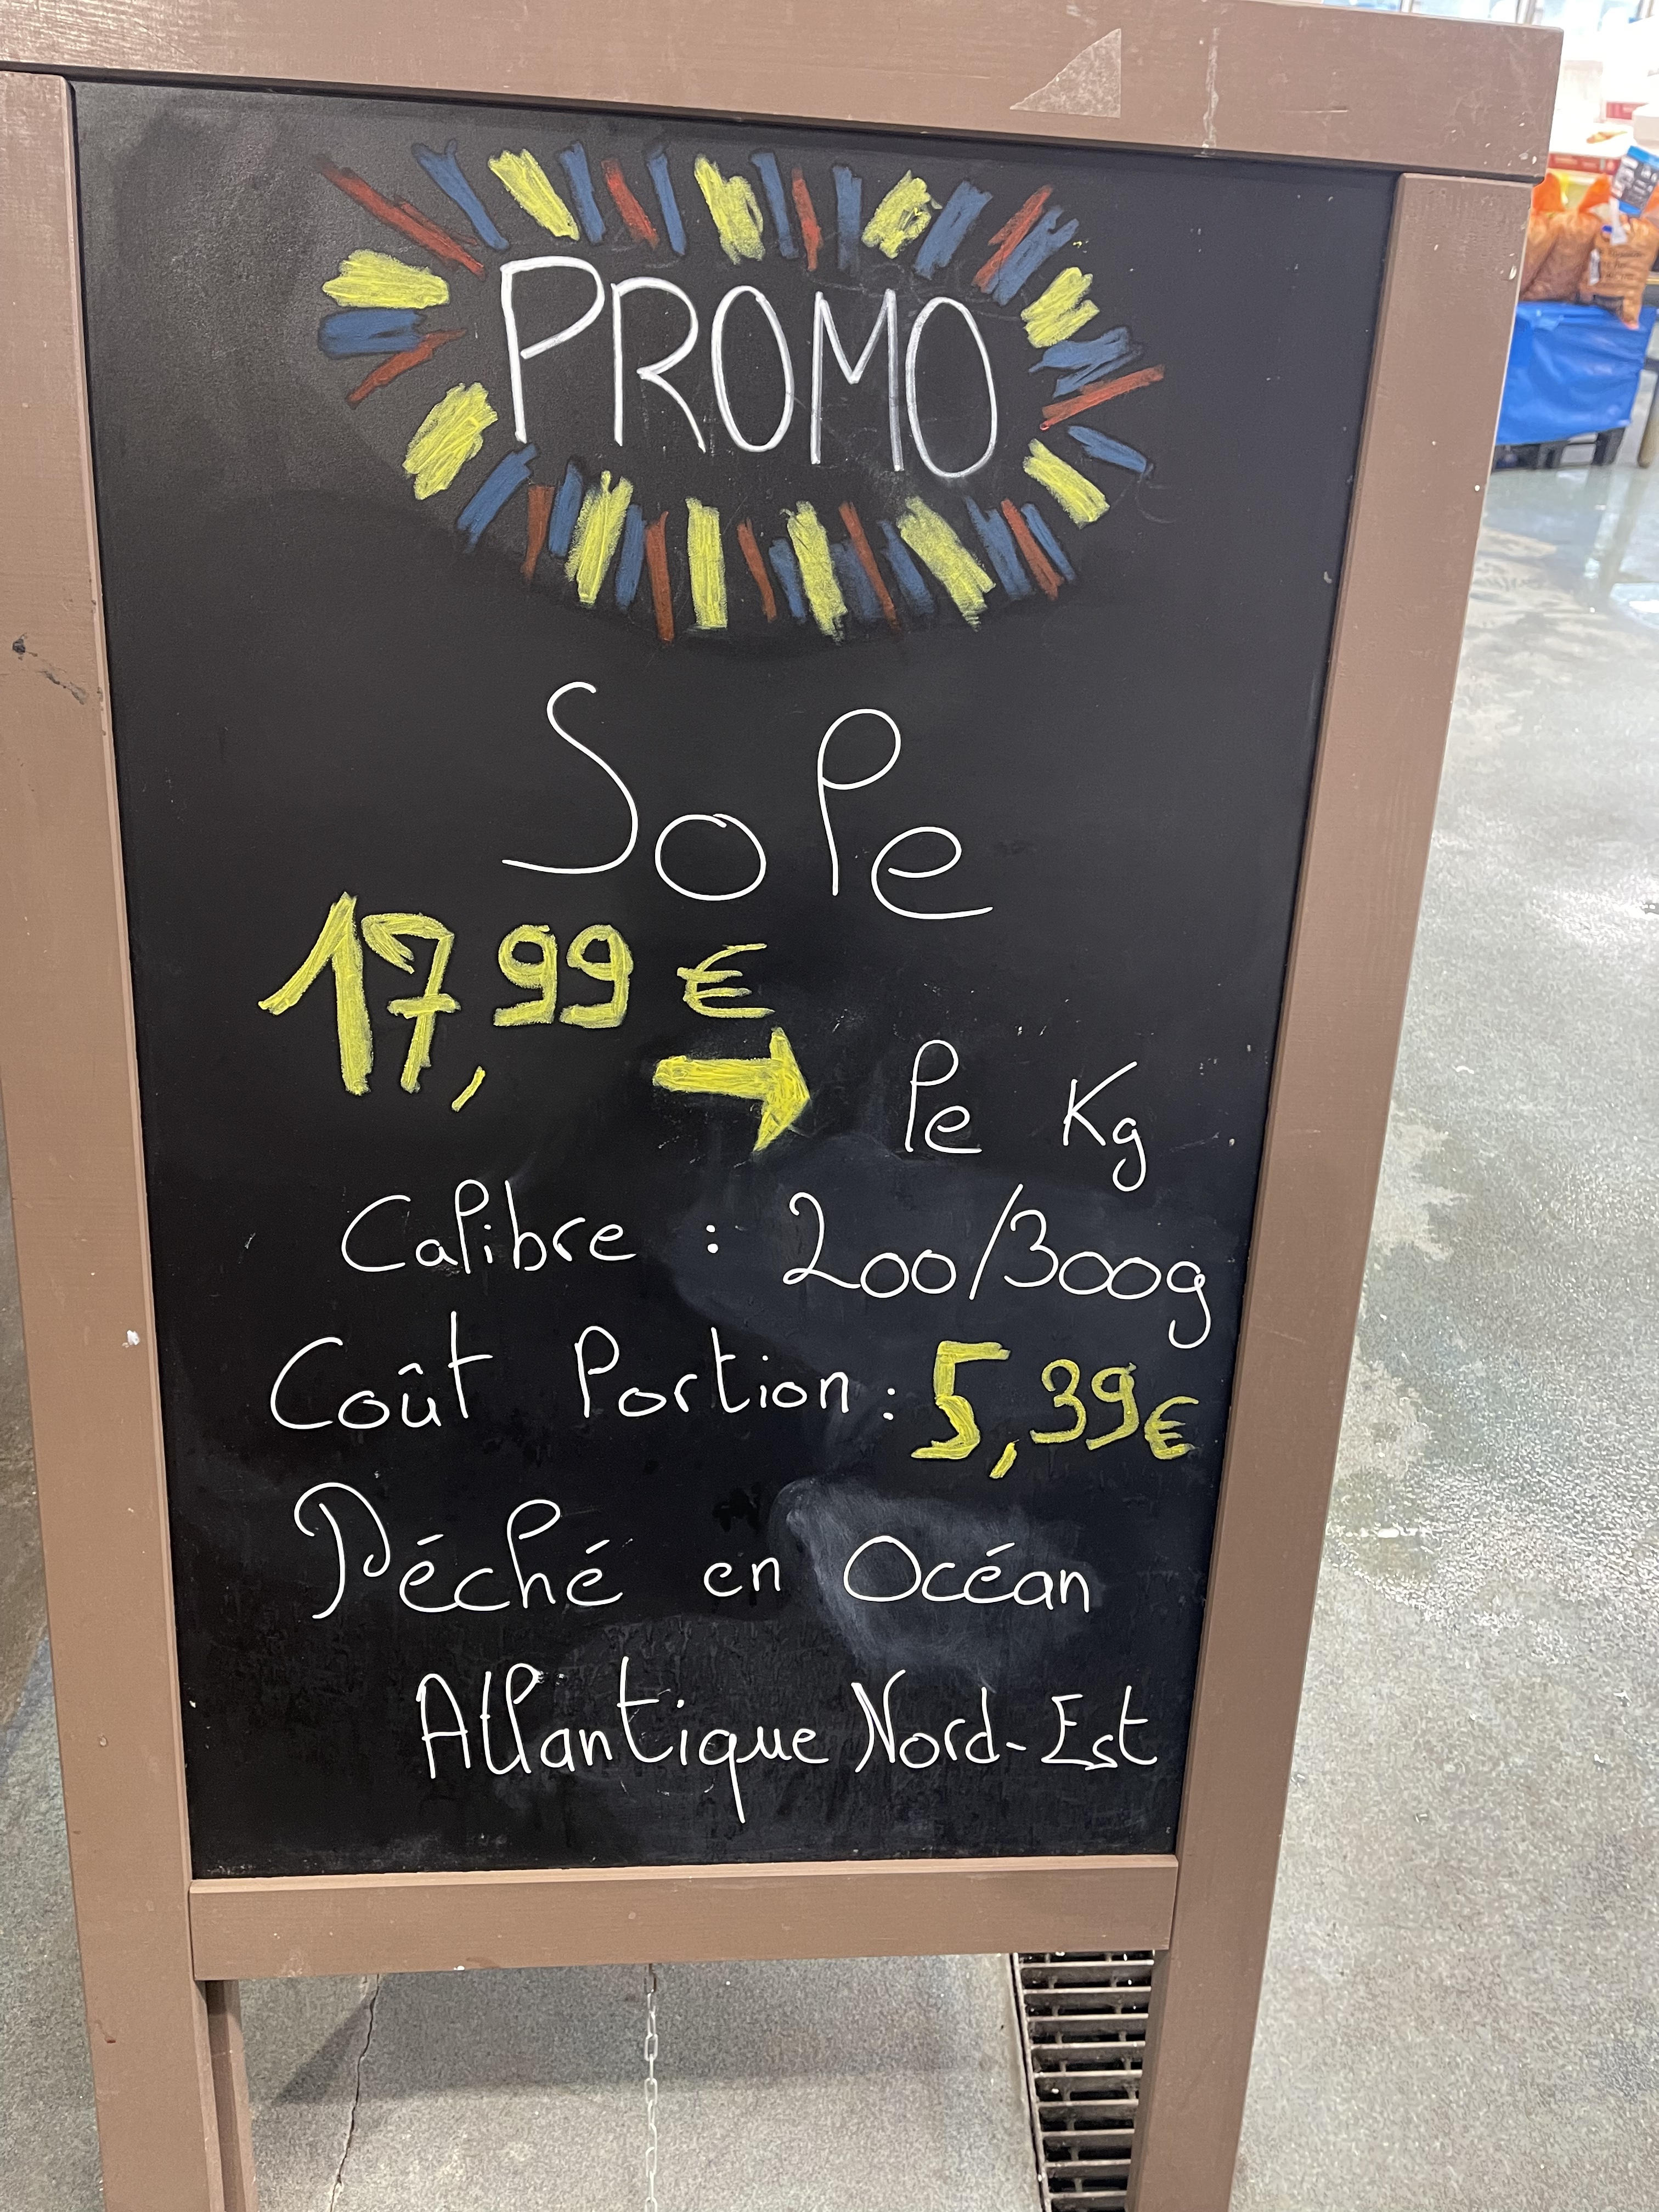 PROMO
Sole
17,99 €
→ le Kg
Calibre : 200/300g
Coût Portion : 5,39€
Péché en Océan
Atlantique Nord-Est